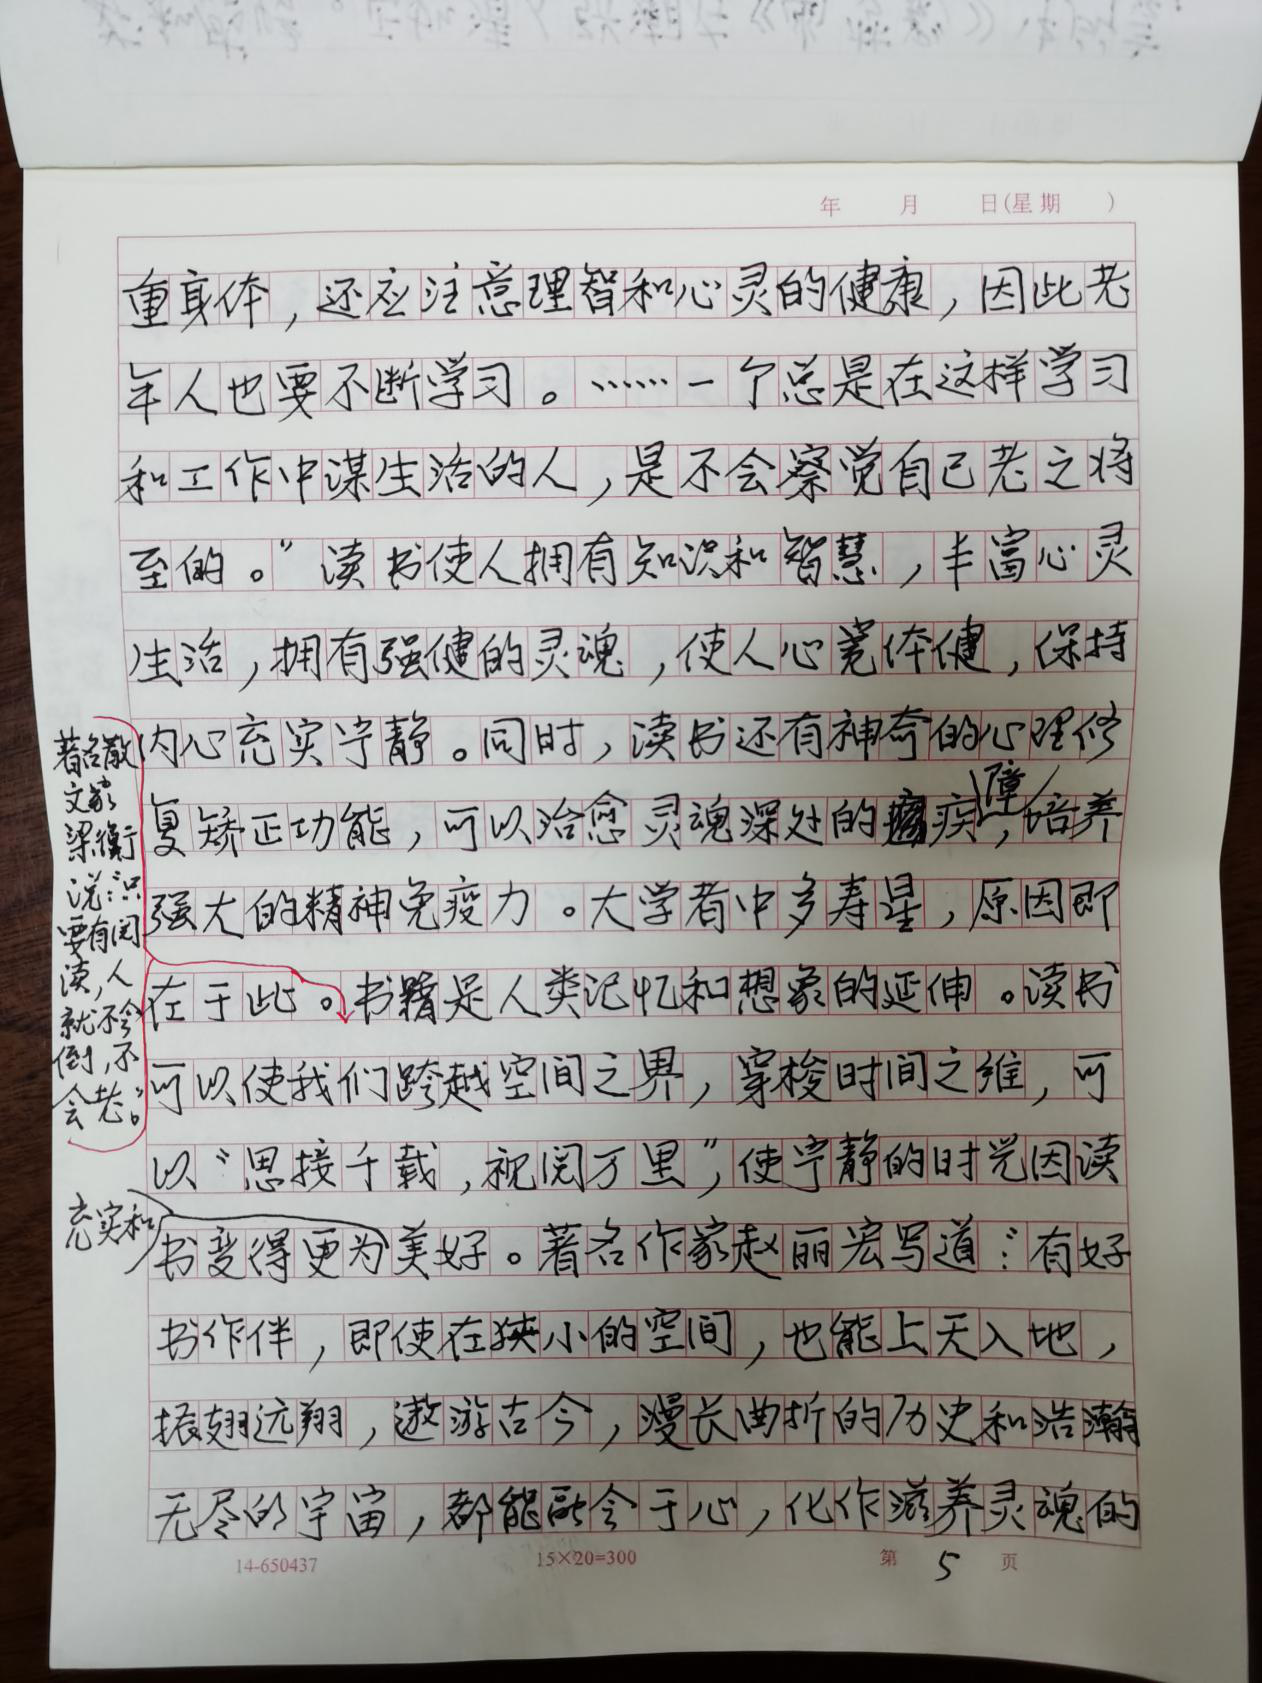 年 月 日(星期 )
重身体，还应注意理智和心灵的健康，因此老
年人也要不断学习。……一个总是在这样学习
和工作中谋生活的人，是不会察觉自己老之将
至的。”读书使人拥有知识和智慧，丰富心灵
生活，拥有强健的灵魂，使人心宽体健，保持
内心充实宁静。同时，读书还有神奇的心理修
复矫正功能，可以治愈灵魂深处的疾障，培养
强大的精神免疫力。大学者中多寿星，原因即
在于此。书籍是人类记忆和想象的延伸。读书
可以使我们跨越空间之界，穿梭时间之维，可
以“思接千载，视阅万里”，使宁静的时光因读
书变得更为美好。著名作家赵丽宏写道：“有好
书作伴，即使在狭小的空间，也能上天入地，
振翅远翔，遨游古今，漫长曲折的历史和浩瀚
无尽的宇宙，都能融会于心，化作滋养灵魂的
著名散
文家
梁衡
说：“只
要有阅
读，人
就不会
倒，不
会老。”
充实和
14-650437 15×20=300 第 5 页